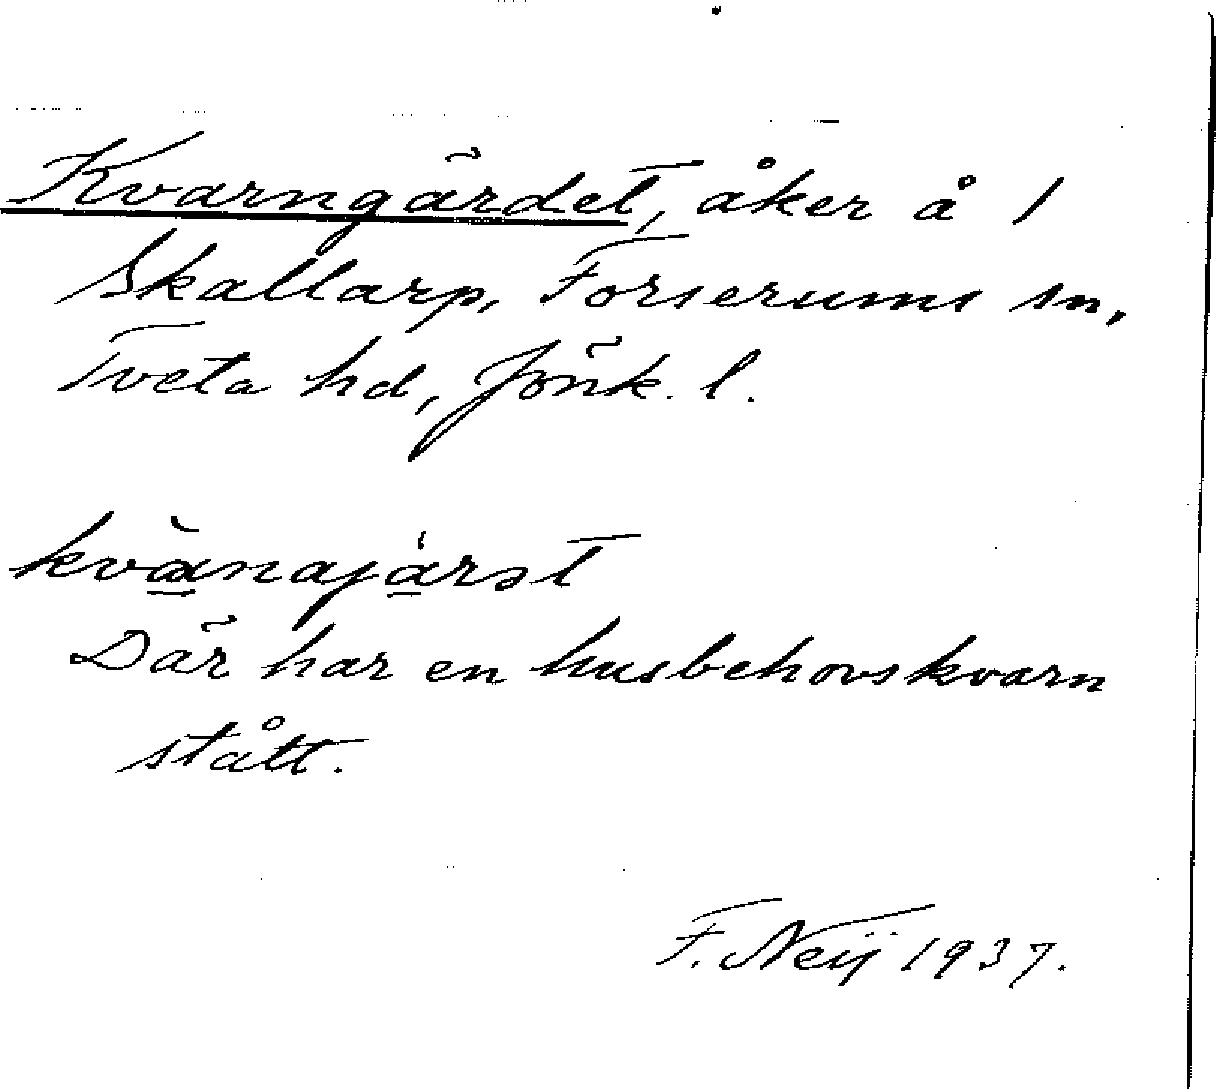 Kvarngärdet, åker å 1
Skallarp, Forserums sn,
Tveta hd, Jönk. l.
Där har en husbehovskvarn
stått.
F. Neij 1937.